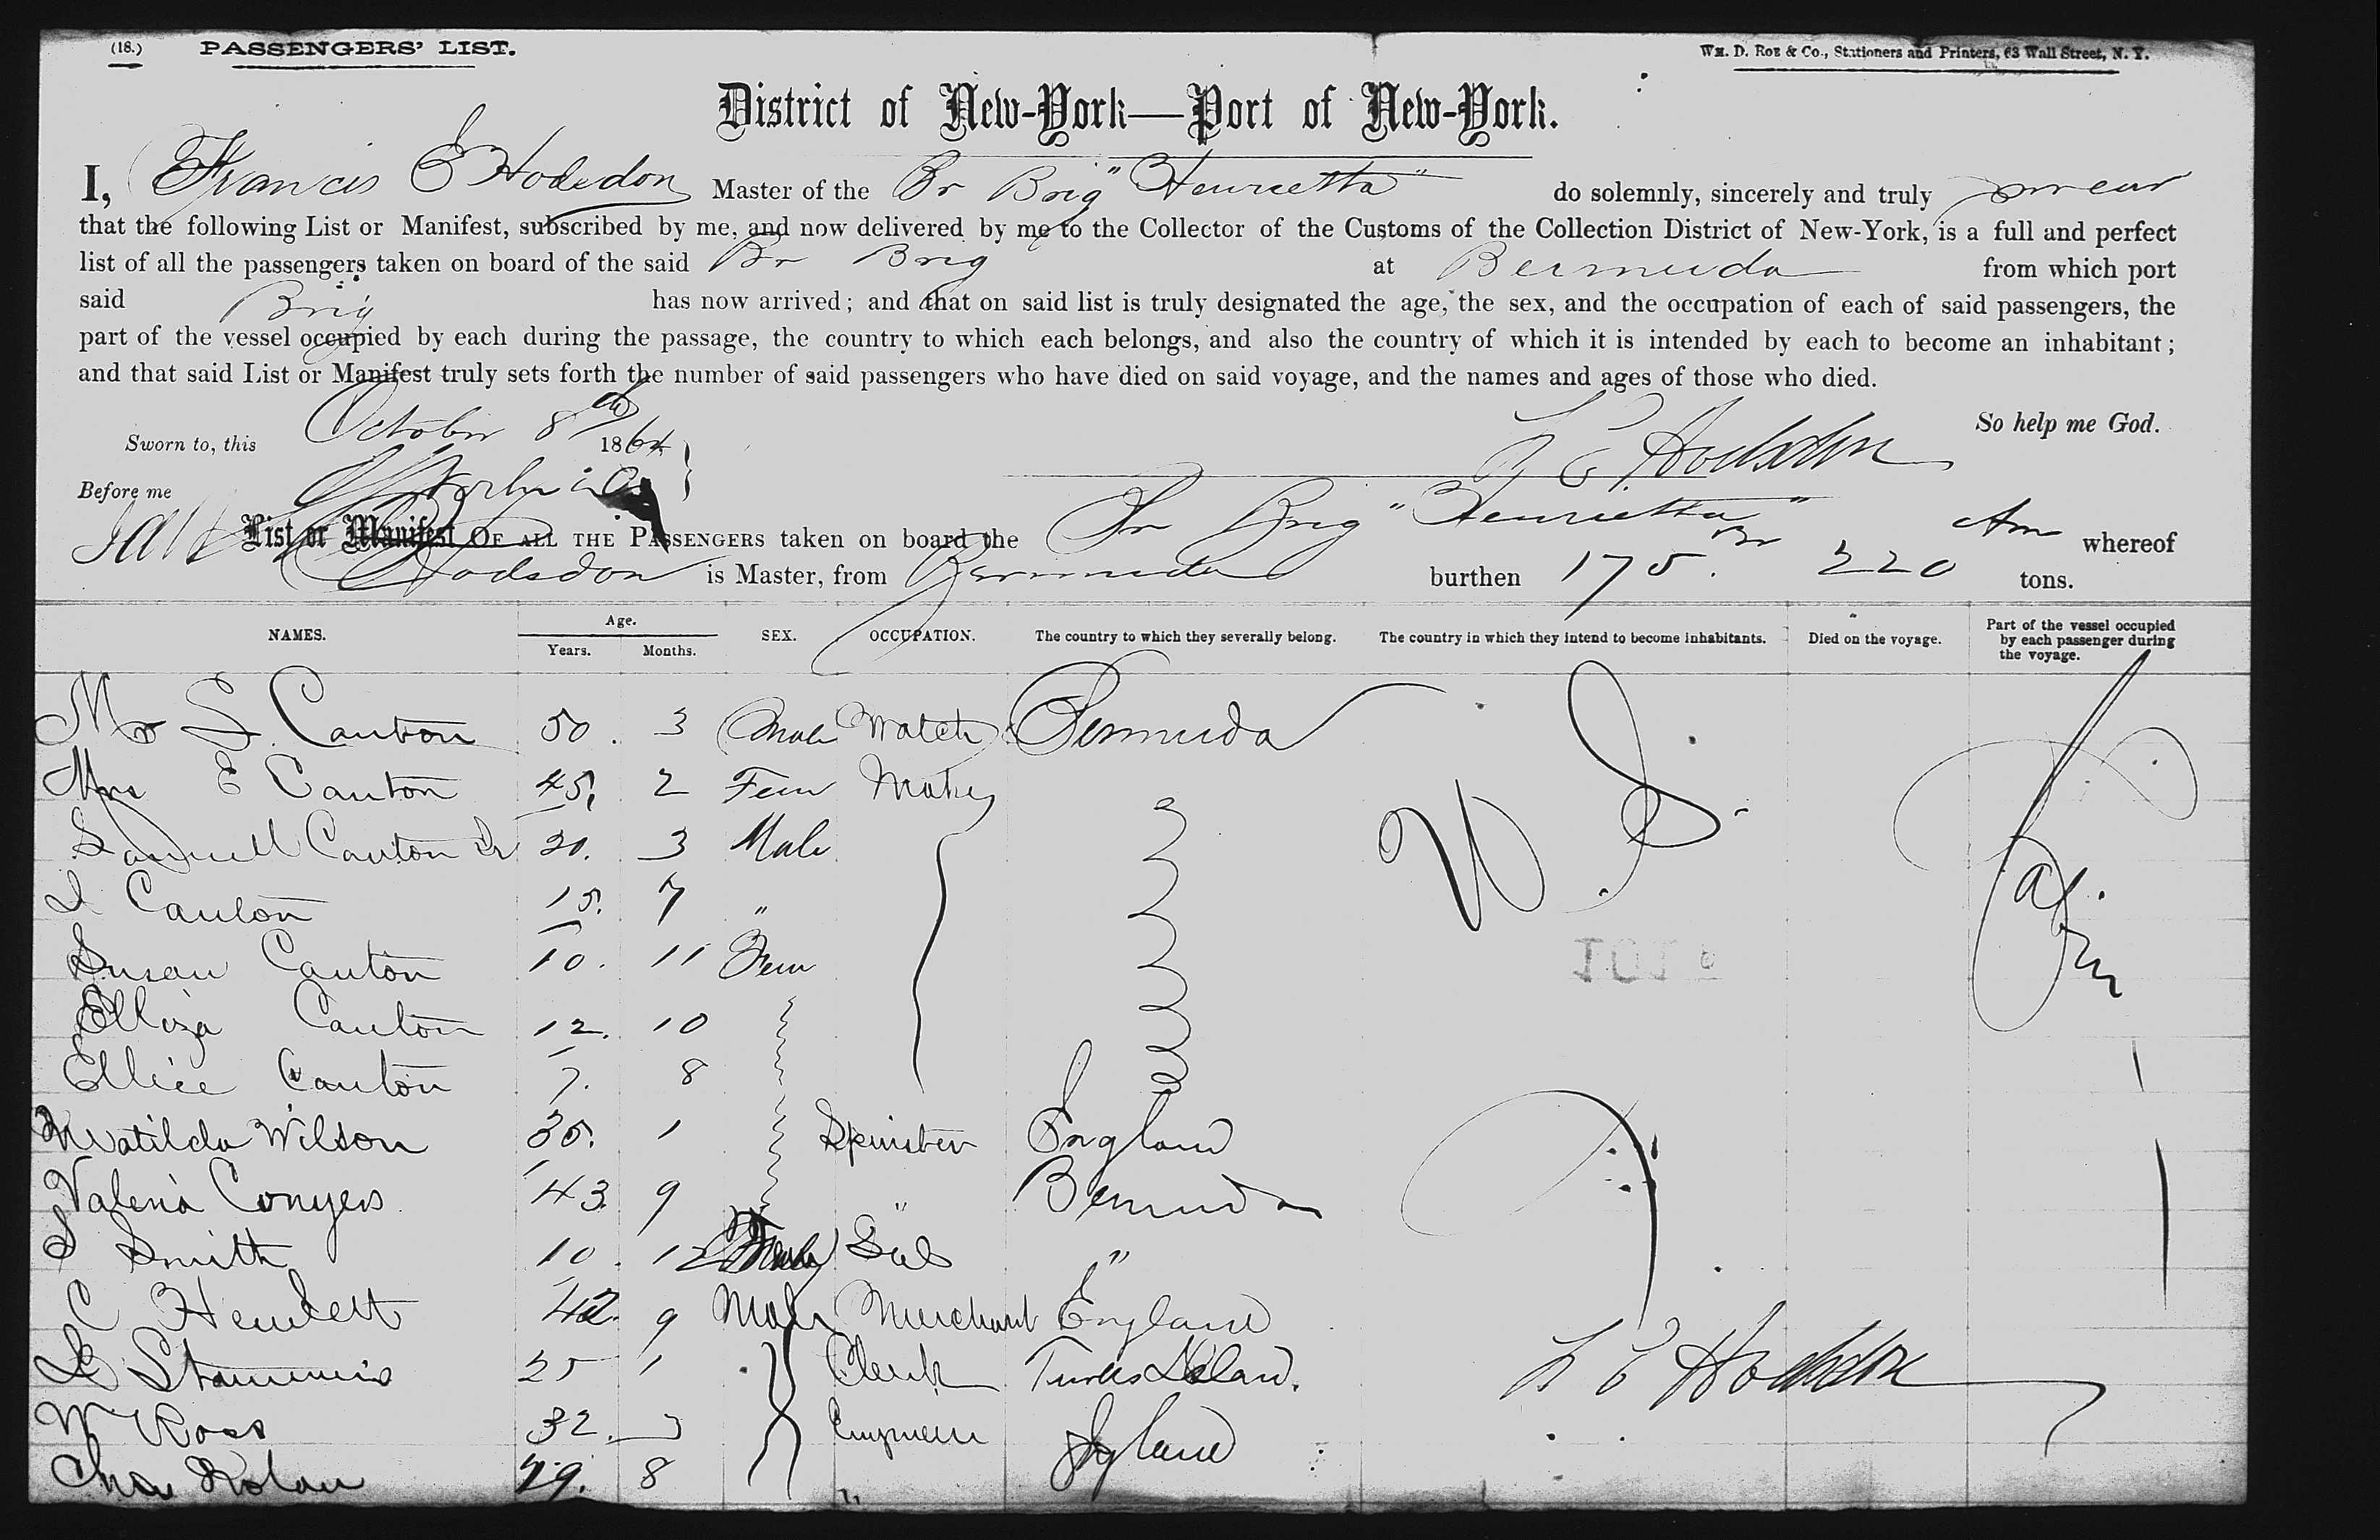 (18.) PASSENGERS' LIST. Wm. D. Roe & Co., Stationers and Printers, 63 Wall Street, N. Y.
District of New-York—Port of New-York.
I, Francis E Hodsdon Master of the Br Brig "Henrietta" do solemnly, sincerely and truly swear
that the following List or Manifest, subscribed by me, and now delivered by me to the Collector of the Customs of the Collection District of New-York, is a full and perfect
list of all the passengers taken on board of the said Br Brig at Bermuda from which port
said Brig has now arrived; and that on said list is truly designated the age, the sex, and the occupation of each of said passengers, the
part of the vessel occupied by each during the passage, the country to which each belongs, and also the country of which it is intended by each to become an inhabitant;
and that said List or Manifest truly sets forth the number of said passengers who have died on said voyage, and the names and ages of those who died.
So help me God.
Sworn to, this October 8th 1864 F E Hodsdon
Before me
List or Manifest OF ALL THE PASSENGERS taken on board the Br Brig "Henrietta" whereof
Hodsdon is Master, from Bermuda burthen 175. Br 220 Am tons.
NAMES. Age. Years. Months. SEX. OCCUPATION. The country to which they severally belong. The country in which they intend to become inhabitants. Died on the voyage. Part of the vessel occupied by each passenger during the voyage.
Mr S. Canton 50. 3 Male Watch Bermuda U S. Cabin
Mrs E Canton 45. 2 Fem Maker
Samuell Canton Jr 20. 3 Male
Canton 15. 7 "
Susan Canton 10. 11 Fem
Elliza Canton 12. 10
Ellice Canton 7. 8
Matilda Wilson 35. 1 Spinster England
Valeria Conyers 43 9 " Bermuda
Smith 10. 12 "
C Hewlett 42. 9 Male Merchant England
Stammis 25 1 Clerk Turks Island. F E Hodsdon
W Ross 32. Engineer England
Chas Nolan 29. 8 "